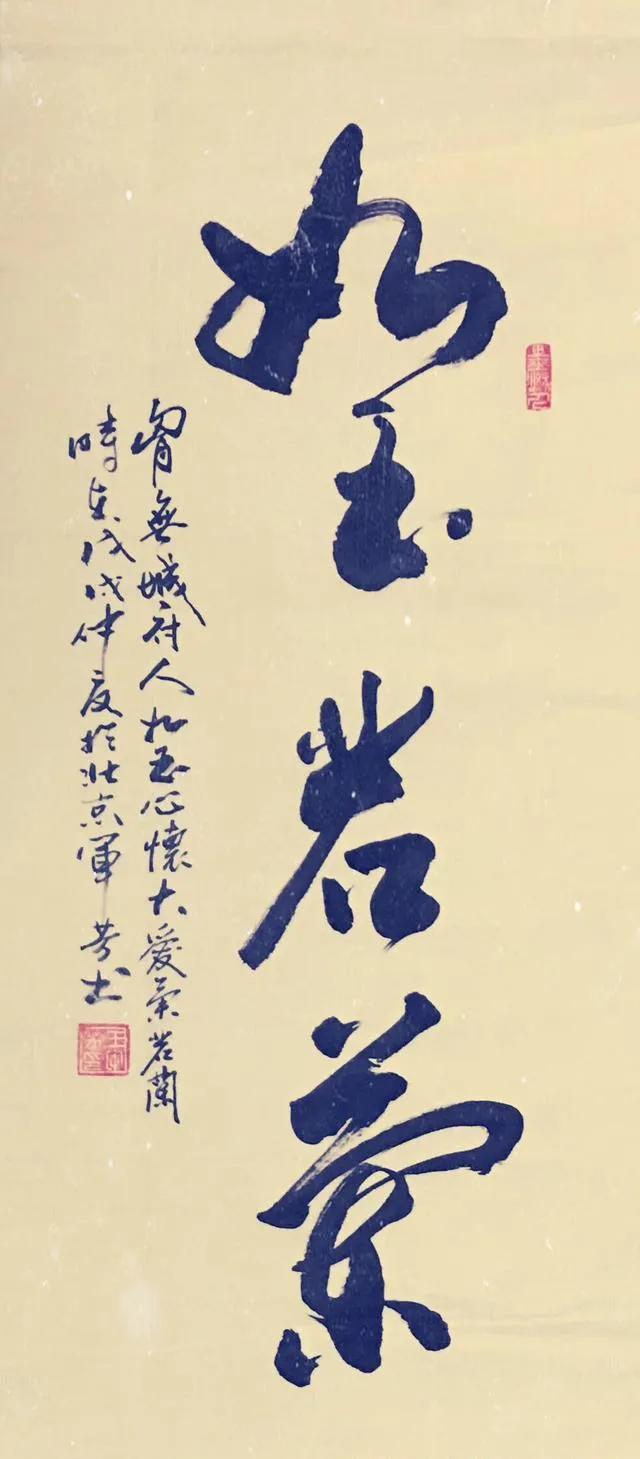 如玉若蘭
胸無城府人如玉心懷大愛氣若蘭
時在戊戌仲夏於北京軍芳书